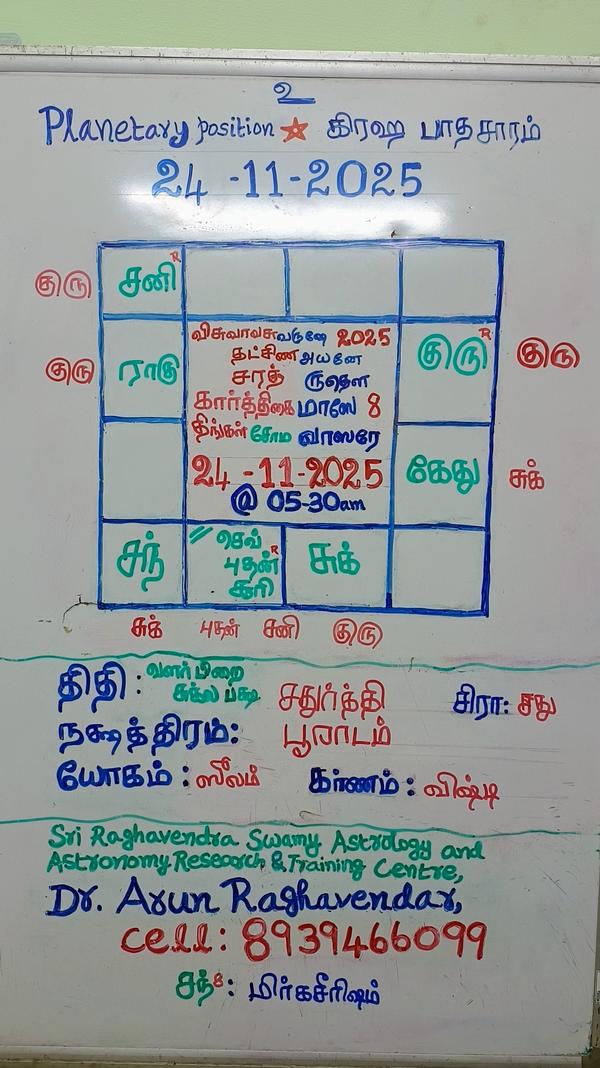 உ
Planetary position கிரஹ பாதசாரம்
24-11-2025
குரு சனி R
குரு ராகு
விசுவாவசு வருஷே 2025
தட்சிண அயனே
சரத் ருதௌ
கார்த்திகை மாஸே 8
திங்கள் சோம வாஸரே
24-11-2025
@ 05-30am
குரு R குரு
கேது சுக்
சந்
// செவ்
புதன் R
சூரி
சுக்
சுக் புதன் சனி குரு
திதி: வளர்பிறை சுக்ல பக்ஷ சதுர்த்தி சிரா: சது
நக்ஷத்திரம்: பூராடம்
யோகம்: ஸூலம் கரணம்: விஷ்டி
Sri Raghavendra Swamy Astrology and
Astronomy Research & Training Centre,
Dr. Arun Raghavendar,
cell: 8939466099
சந்8: மிர்கசீரிஷம்